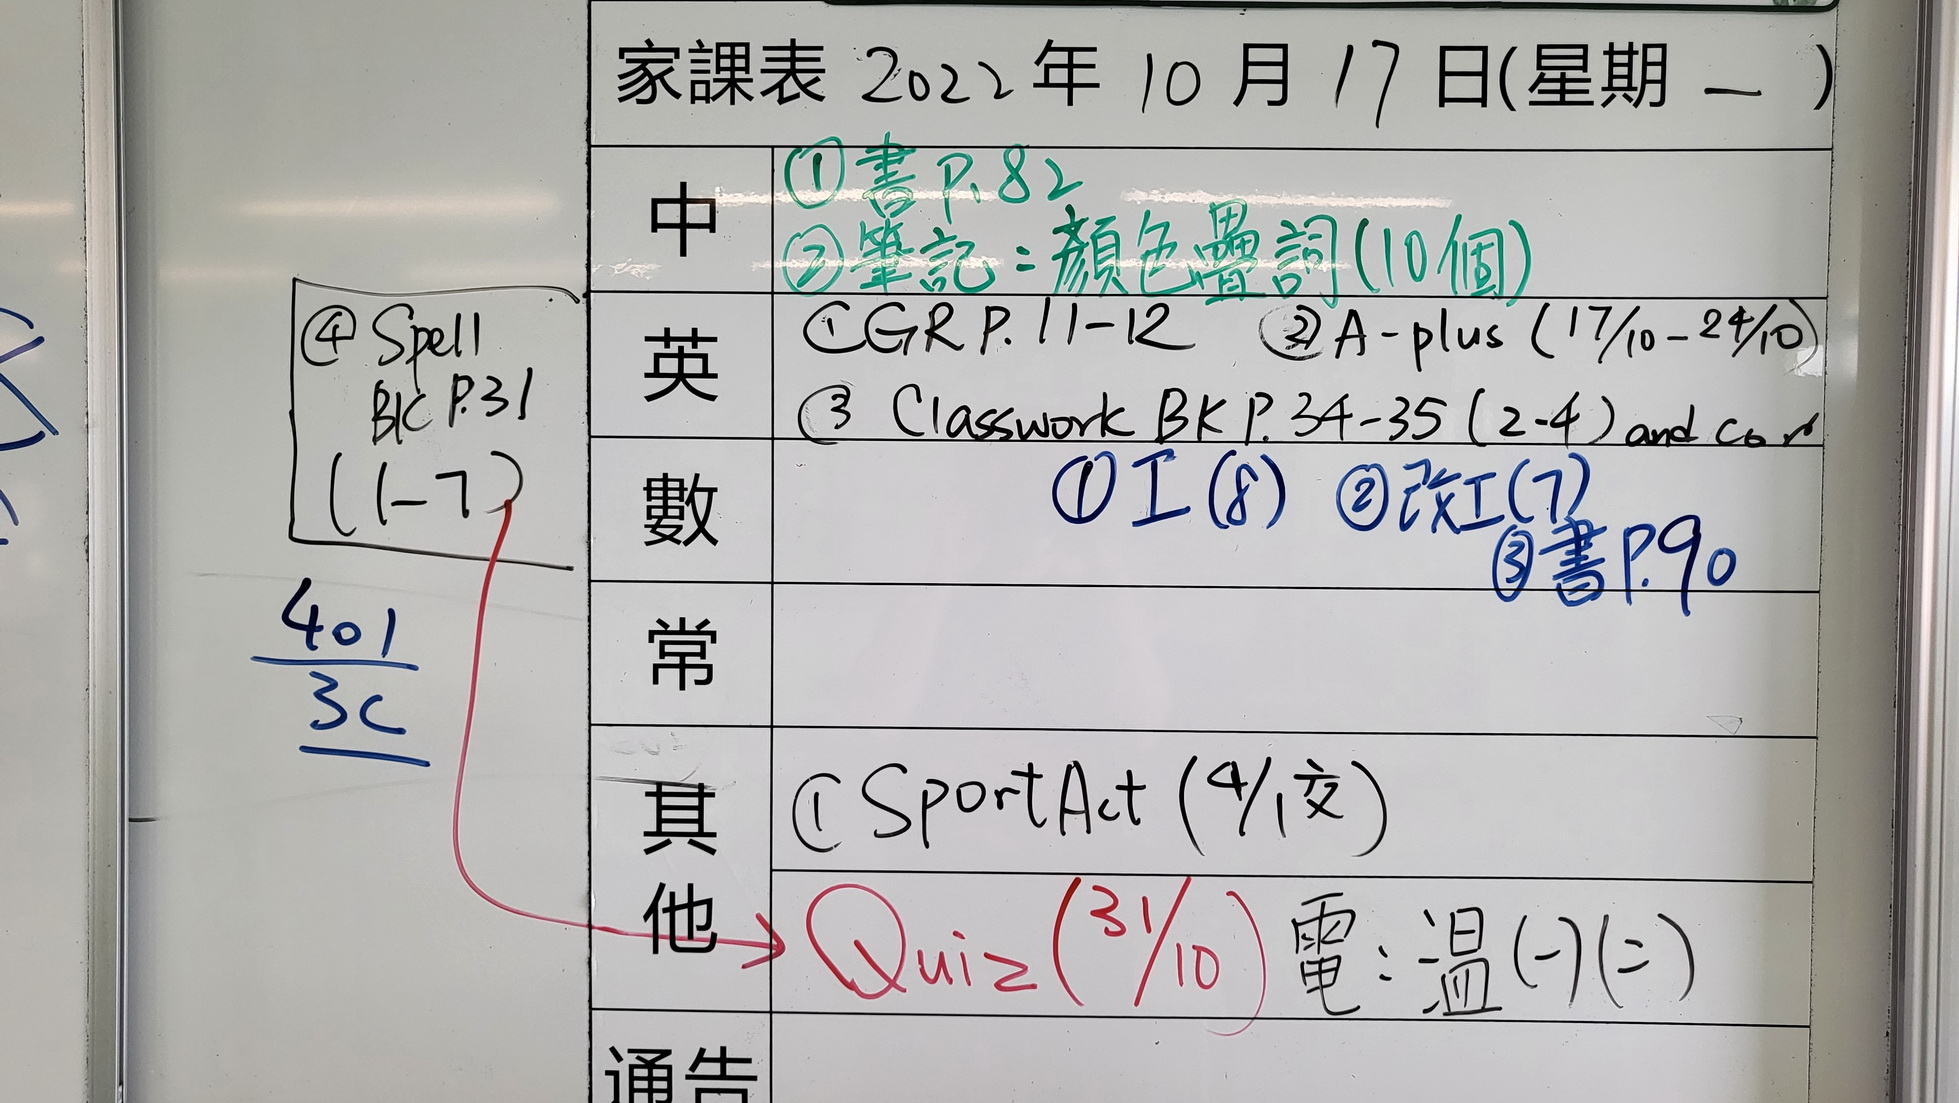 家課表 2022年 10月 17日(星期 一 )
中
①書P.82
②筆記:顏色疊詞(10個)
英
①GR P.11-12 ②A-plus (17/10-24/10)
③ Classwork BK P.34-35 (2-4) and cor
④ Spell
BK P.31
(1-7)
數
①工(8) ②改工(7)
③書P.90
401
3C
常
其他
①SportAct (4/1交)
Quiz (31/10) 電:溫(一)(二)
通告